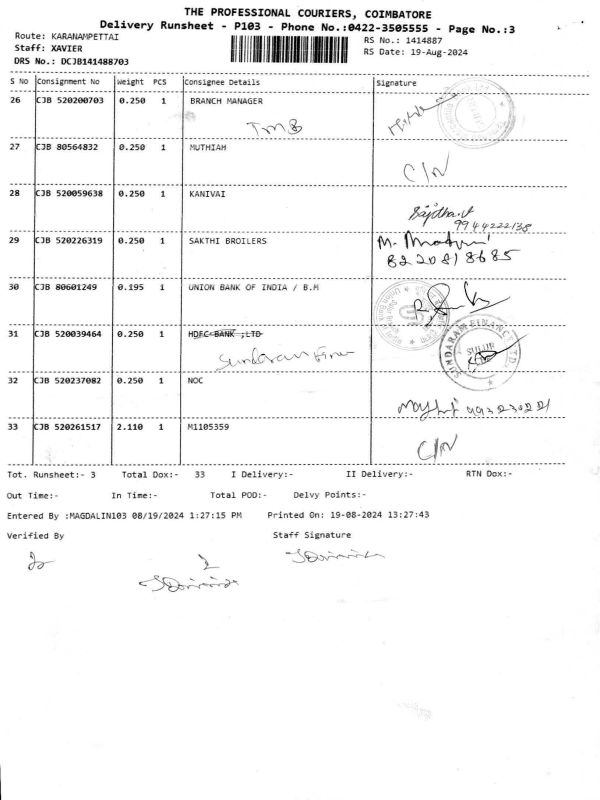 THE PROFESSIONAL COURIERS, COIMBATORE
Delivery Runsheet - P103 - Phone No.:0422-3505555 - Page No.:3
Route: KARANAMPETTAI
RS No.: 1414887
Staff: XAVIER
RS Date: 19-Aug-2024
DRS No.: DCJB141488703
S No Consignment No Weight PCS Consignee Details Signature
26 CJB 520200703 0.250 1 BRANCH MANAGER
TMB
27 CJB 80564832 0.250 1 MUTHIAH
C/N
28 CJB 520059638 0.250 1 KANIVAI
9944222138
29 CJB 520226319 0.250 1 SAKTHI BROILERS
M.
8220818685
30 CJB 80601249 0.195 1 UNION BANK OF INDIA / B.M
31 CJB 520039464 0.250 1 HDFC BANK ,LTD
SUNDARAM FINANCE LTD.
SULUR
Sundaram
32 CJB 520237082 0.250 1 NOC
33 CJB 520261517 2.110 1 M1105359
C/N
Tot. Runsheet:- 3 Total Dox:- 33 I Delivery:- II Delivery:- RTN Dox:-
Out Time:- In Time:- Total POD:- Delvy Points:-
Entered By :MAGDALIN103 08/19/2024 1:27:15 PM Printed On: 19-08-2024 13:27:43
Verified By Staff Signature